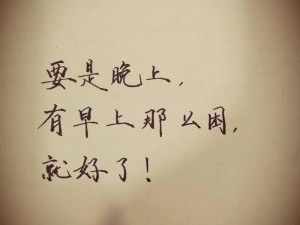 要是晚上，
有早上那么困，
就好了！